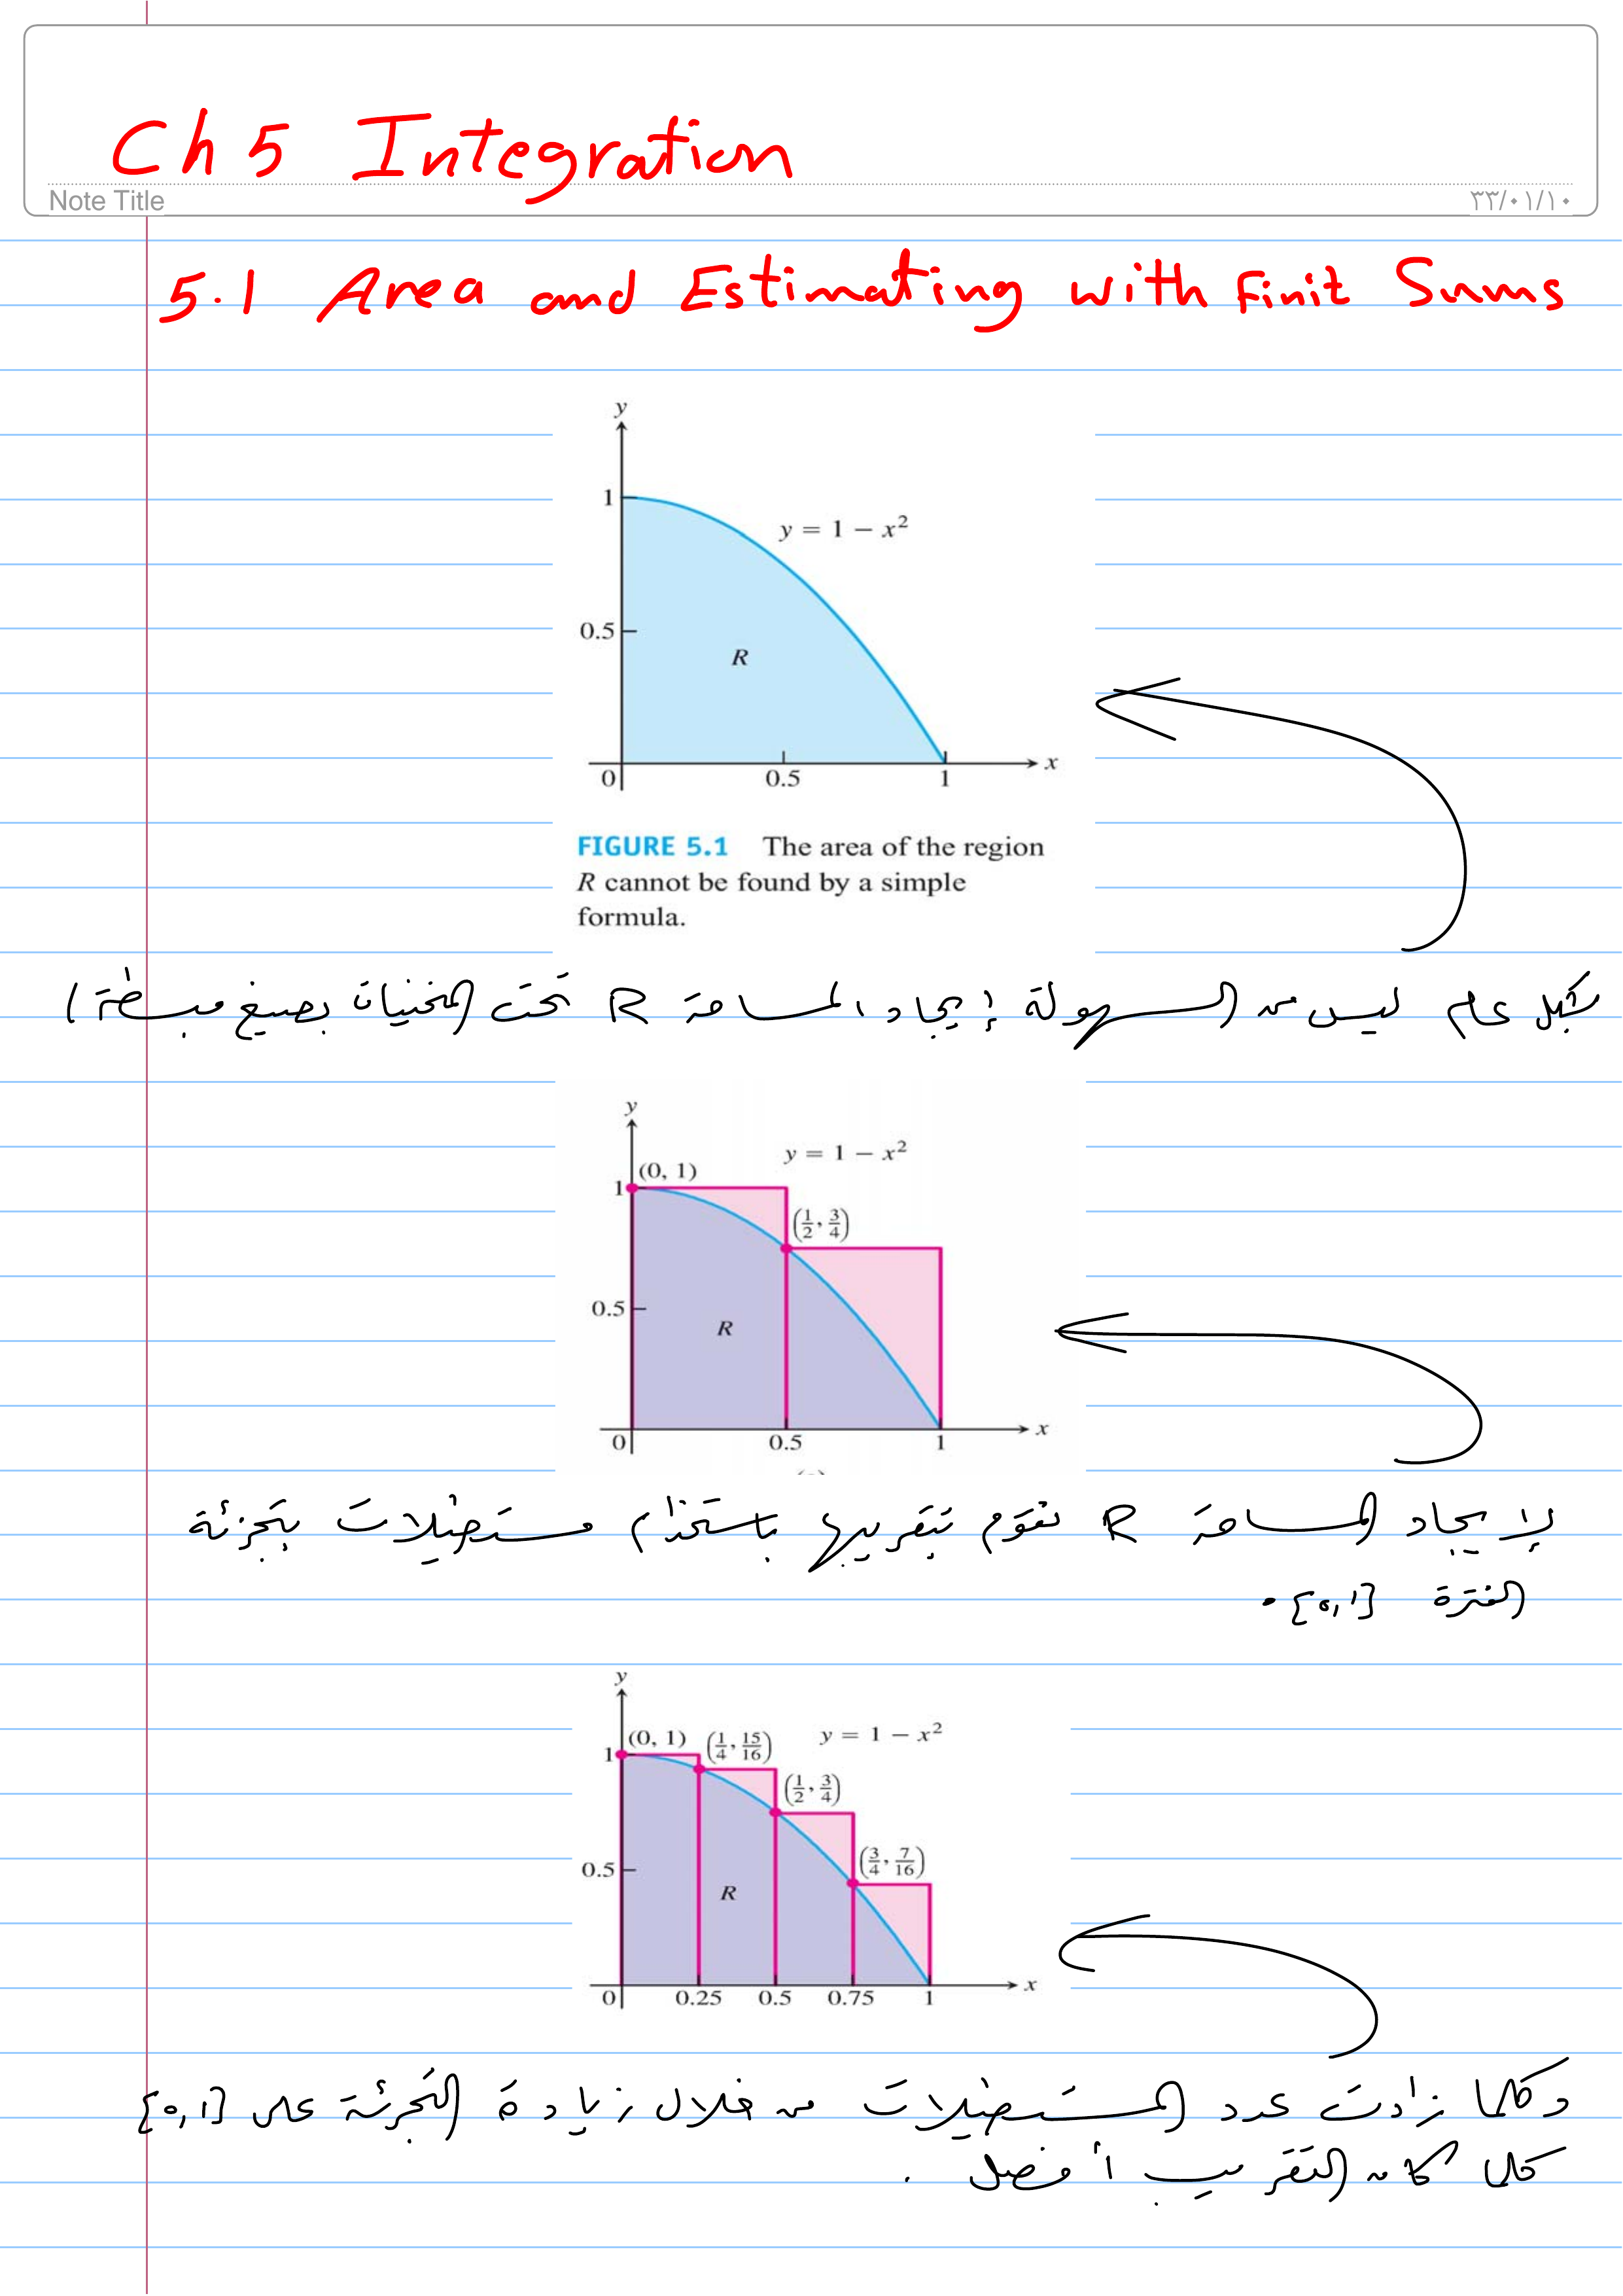 Ch 5 Integration
Note Title
٣٣/٠١/١٠
5.1 Area and Estimating with Finit Sums
y
1
y = 1 − x²
0.5
R
0
0.5
1
x
FIGURE 5.1 The area of the region
R cannot be found by a simple
formula.
بشكل عام ليس من السهولة إيجاد المساحة R تحت المنحنيات بصيغ مبسطة )
y
y = 1 − x²
(0, 1)
1
(1/2, 3/4)
0.5
R
0
0.5
1
x
لإيجاد المساحة R نقوم بتقريبها باستخدام مستطيلات بتجزئة
الفترة [0,1] .
y
(0, 1)
(1/4, 15/16)
y = 1 − x²
1
(1/2, 3/4)
(3/4, 7/16)
0.5
R
0
0.25
0.5
0.75
1
x
وكلما زادت عدد المستطيلات من خلال زيادة التجزئة على [0,1]
كلما كان التقريب أفضل .